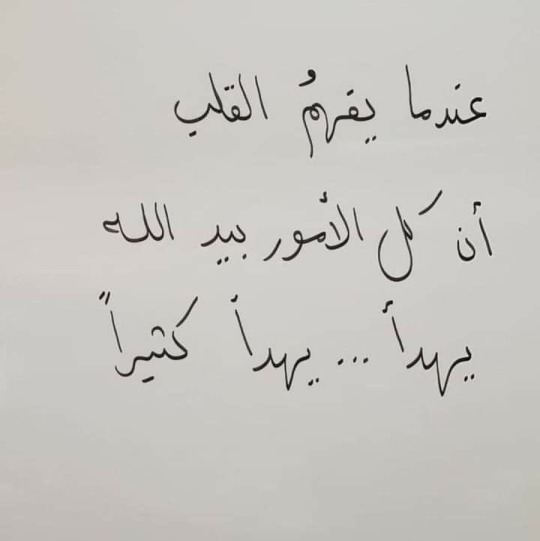 عندما يفهمُ القلب
أن كل الأمور بيد الله
يهدأ ... يهدأ كثيراً